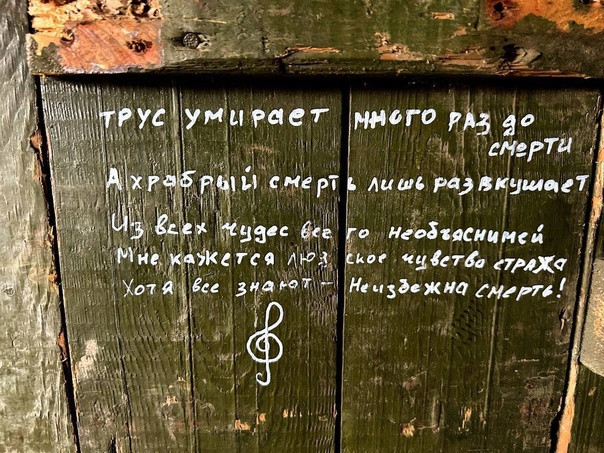 трус умирает много раз до
смерти
А храбрый смерть лишь раз вкушает
Из всех чудес всего необъяснимей
Мне кажется людское чувство страха
Хотя все знают – Неизбежна смерть!